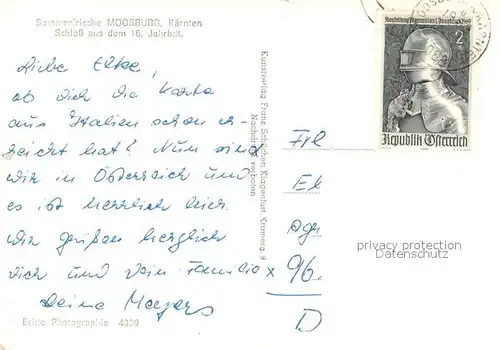 Sommerfrische MOOSBURG, Kärnten
Schloß aus dem 16. Jahrhdt.
Liebe Elke,
ob dich die Karte
aus Italien schon er-
reicht hat? Nun sind
wir in Österreich und
es ist herrlich hier.
Wir grüßen herzlich
dich und Dein Familie
Deine Mayers
Echte Photographie 4309
Kunstverlag Franz Schilcher, Klagenfurt,
Nachdruck verboten
2
Republik Österreich
Frl
El
96
D
privacy protection
Datenschutz